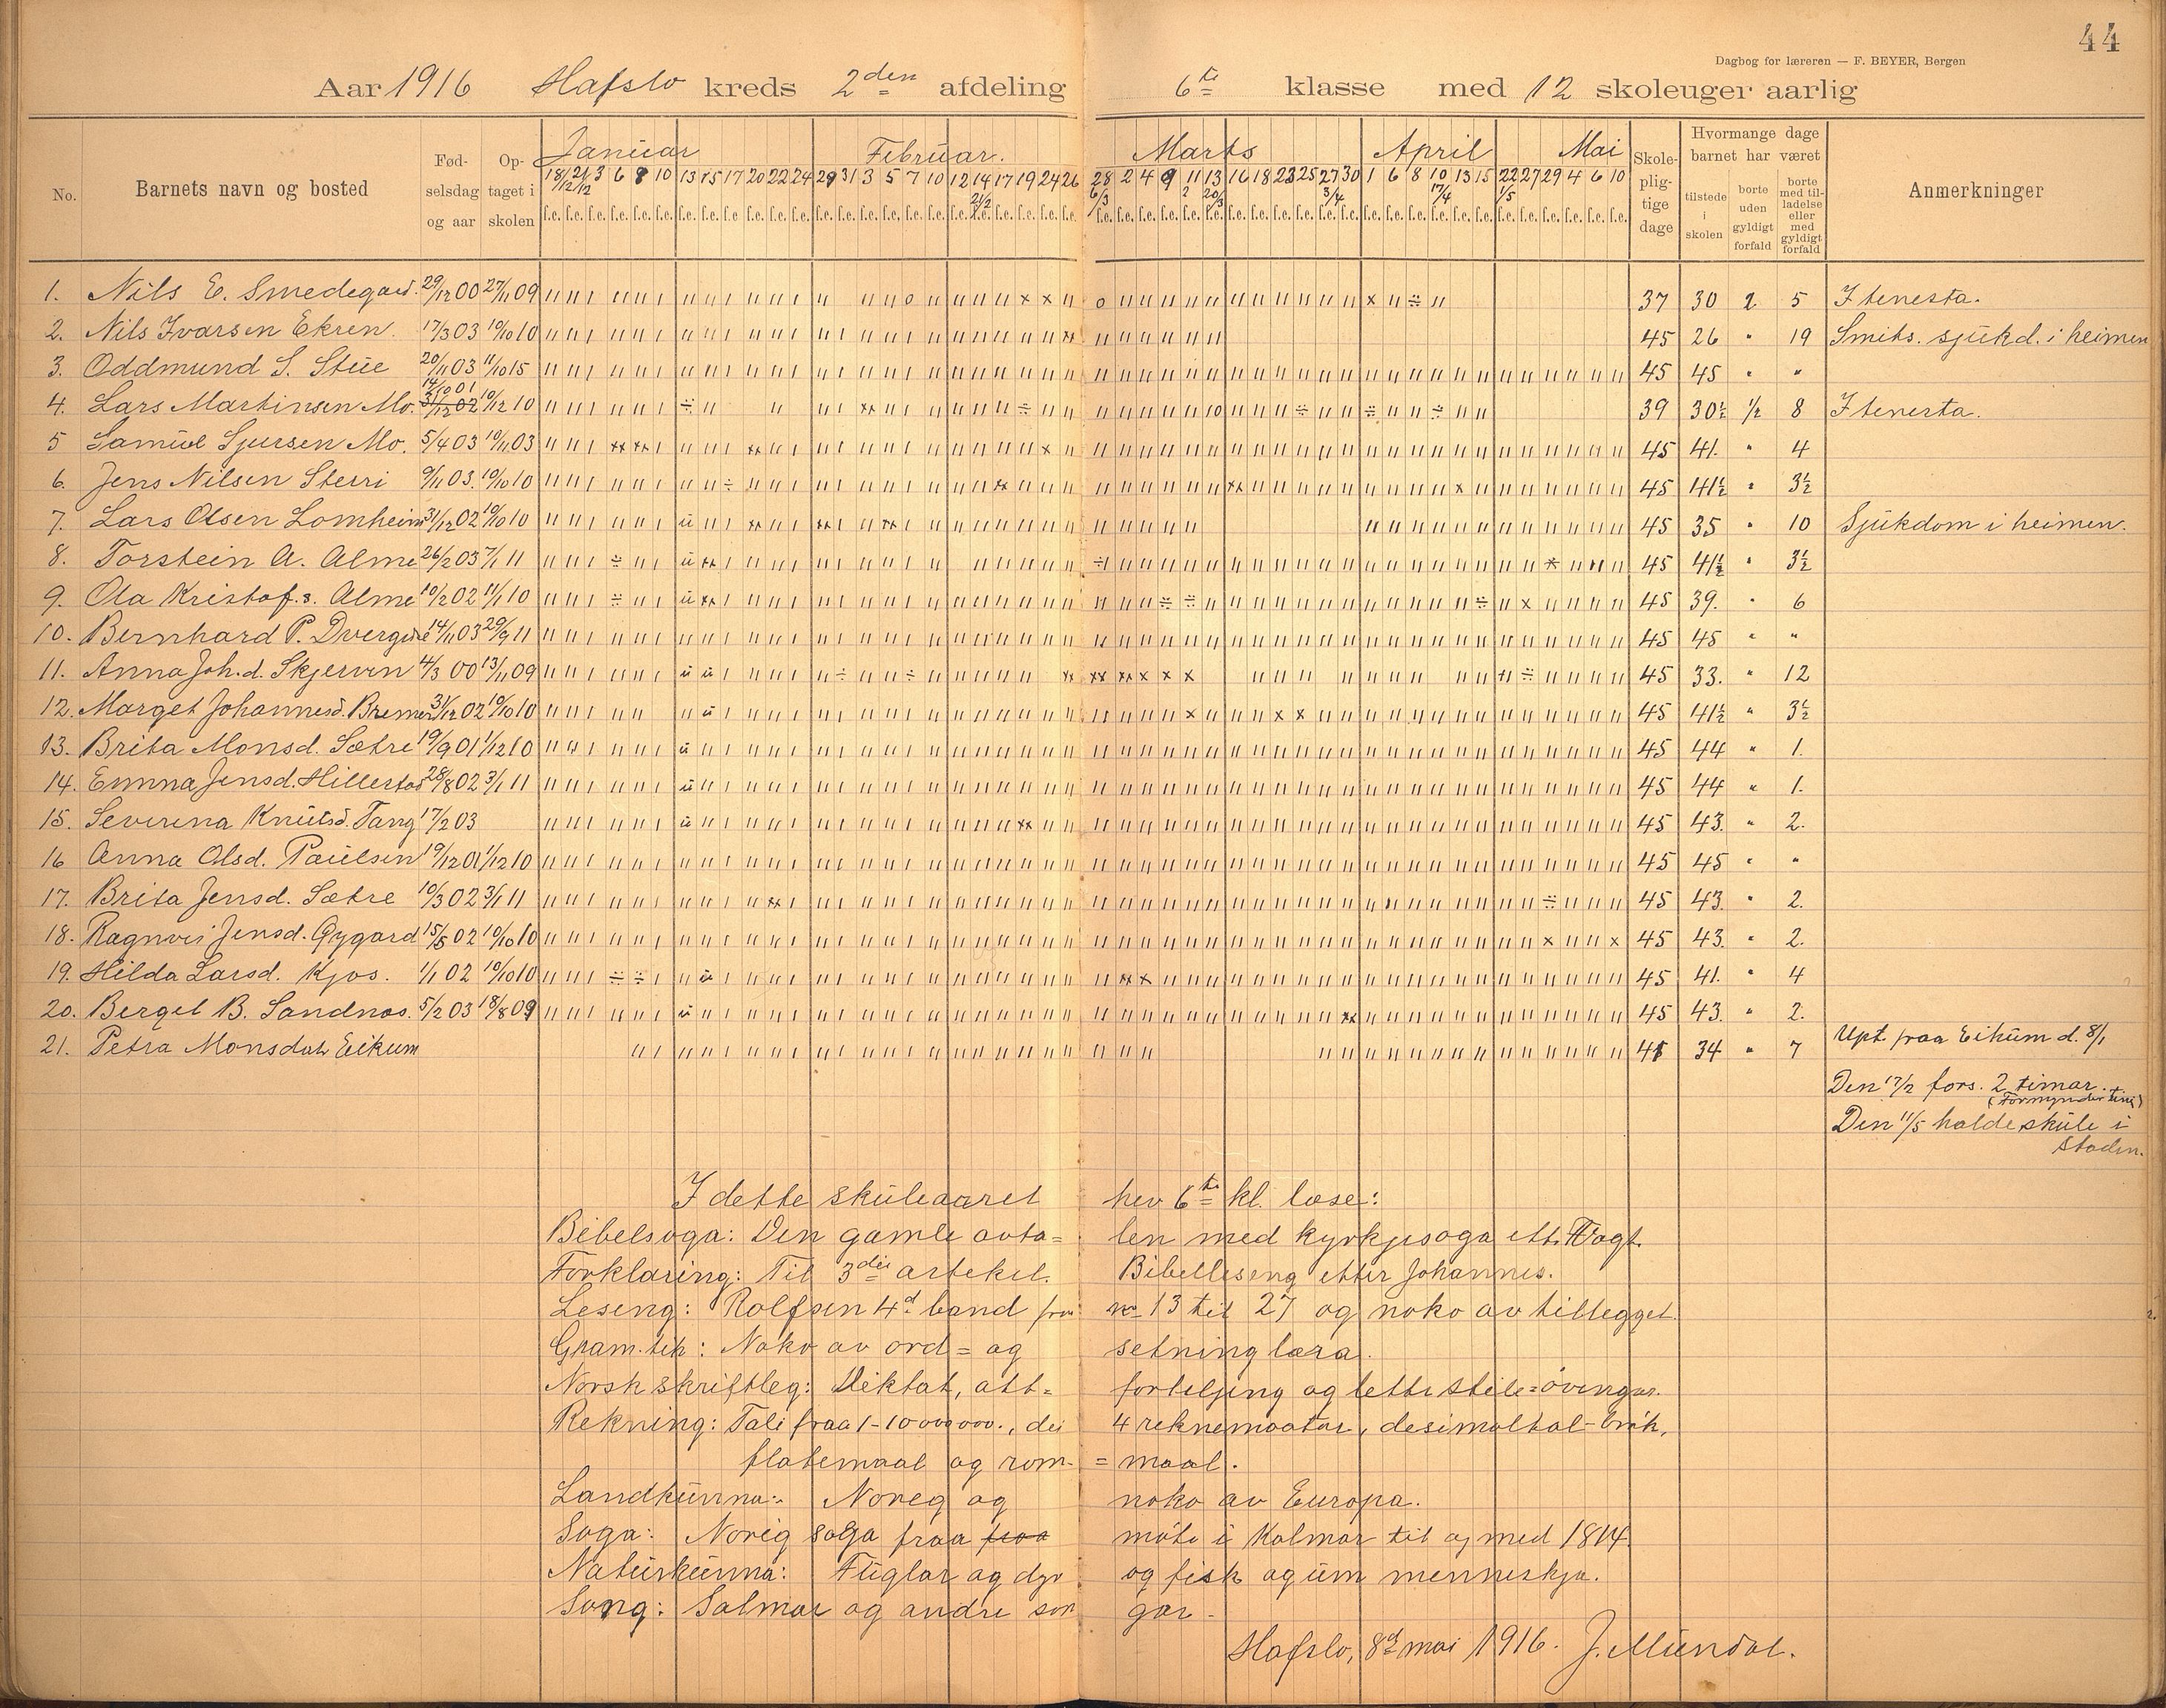 44
Dagbog for læreren — F. BEYER, Bergen
Aar 1916 Hafslo kreds 2den afdeling 6te klasse med 12 skoleuger aarlig
No. Barnets navn og bosted Fød-selsdag og aar Op-taget i skolen Januar Februar. Marts April Mai Skole-plig-tige dage Hvormange dage barnet har været tilstede i skolen borte uden gyldigt forfald borte med til-ladelse eller med gyldigt forfald Anmerkninger
1. Nils E. Smedegard. 29/12 00 27/11 09 37 30 2 5 I tenesta.
2. Nils Ivarsen Ekren. 17/3 03 10/10 10 45 26 " 19 Smits. sjukd. i heimen
3. Oddmund S. Stue 20/11 03 11/10 15 45 45 " "
4. Lars Martinsen Mo. 14/10 01 31/12 02 10/12 10 39 30½ ½ 8 I tenesta.
5 Samuel Sjursen Mo. 5/4 03 10/11 03 45 41. " 4
6. Jens Nilsen Sterri 9/11 03. 10/10 10 45 41½ " 3½
7. Lars Olsen Lomheim 31/12 02 10/10 10 45 35 " 10 Sjukdom i heimen.
8. Torstein A. Alme 26/2 03 7/1 11 45 41½ " 3½
9. Ola Kristof.s. Alme 10/2 02 11/1 10 45 39. " 6
10. Bernhard P. Dvergsde 14/11 03 29/9 11 45 45 " "
11. Anna Joh.d. Skjervin 4/3 00 13/11 09 45 33. " 12
12. Marget Johannesd. Bremer 31/12 02 10/10 10 45 41½ " 3½
13. Brita Monsd. Sætre 19/9 01 1/12 10 45 44 " 1.
14. Emma Jensd. Hillestad 28/8 02 3/1 11 45 44 " 1.
15. Severina Knutsd. Tang 17/2 03 45 43. " 2.
16 Anna Olsd. Paulsen 19/12 01 1/12 10 45 45 " "
17. Brita Jensd. Sætre 10/3 02 3/1 11 45 43. " 2.
18. Ragnvei Jensd. Gygard 15/5 02 10/10 10 45 43. " 2.
19. Hilda Larsd. Kjos. 1/1 02 10/10 10 45 41. " 4
20. Berget B. Sandnes. 5/2 03 18/8 09 45 43. " 2.
21. Petra Monsdatr Eikum 41 34 " 7 Upt. fraa Eikum d. 8/1
Den 17/2 fors. 2 timar.
(Formyndarting)
Den 11/5 halde skule i
staden.
I dette skuleaaret hev 6te kl. lese:
Bibelsoga: Den gamle avta= len med kyrkjesoga ett. Vogt.
Forklaring: Til 3die artekel. Bibellesing etter Johannes.
Lesing: Rolfsen 4d band fraa no 13 til 27 og noko av tillegget.
Gram.tik: Noko av ord= og setninglæra.
Norsk skriftleg: Diktat, att= forteljing og lette stile=øvingar.
Rekning: Tali fraa 1-10000000., dei 4 reknemaatar, desimaltal-brøk,
flatemaal og rom- = maal.
Landkunna: Noreg og noko av Europa.
Soga: Norig soga fraa fraa møte i Kalmar til og med 1814.
Naturkunna: Fuglar og dyr og fisk og um menneskja.
Song: Salmar og andre son gar.
Hafslo, 8d mai 1916. J. Mundal.